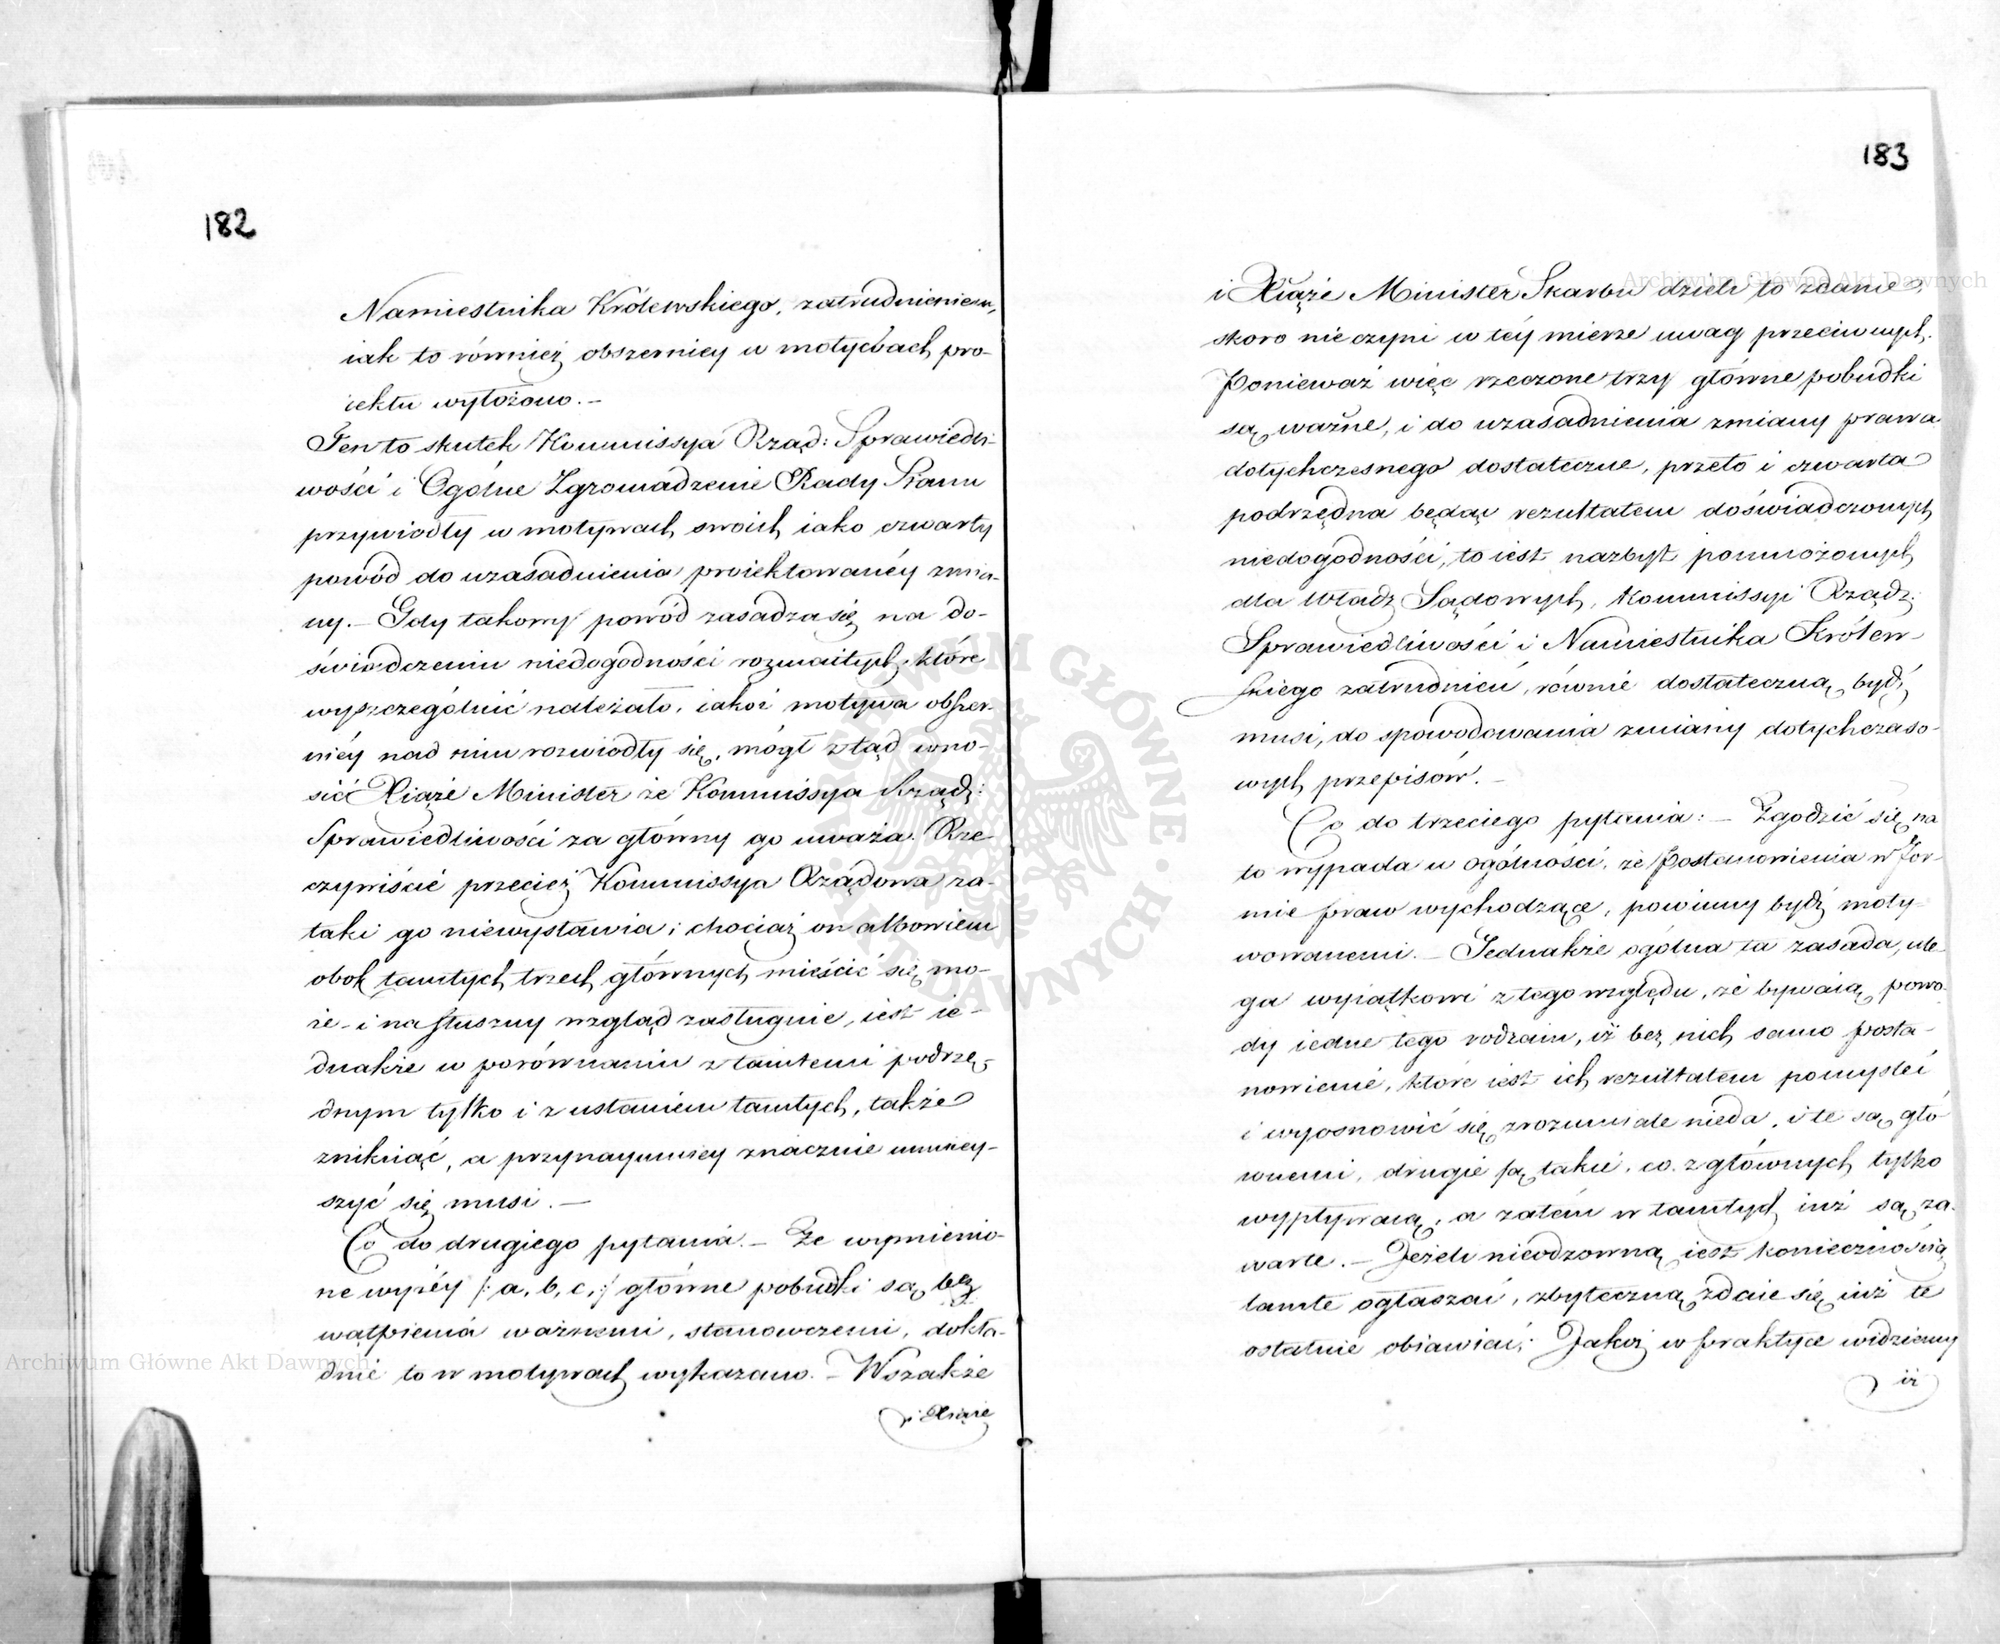 182
Namiestnika Królewskiego, zatrudnieniem,
iak to również obszerniey w motywach pro-
iektu wyłożono. —
Ten to skutek Kommissya Rząd: Sprawiedli-
wości i Ogólne Zgromadzenie Rady Stanu
przywiodły w motywach swoich iako czwarty
powód do uzasadnienia proiektowanéy zmia-
ny. — Gdy takowy powód zasadza się na do-
świadczeniu niedogodności rozmaitych, które
wyszczególnić należało, iakoż motywa obszer-
niéy nad nim rozwiodły się, mógł ztąd wno-
sić Xiąże Minister że Kommissya Rządz:
Sprawiedliwości za główny go uważa. Rze-
czywiście przecież Kommissya Rządowa za-
taki go niewystawia; chociaż on albowiem
obok tamtych trzech głównych mieścić się mo-
że i na słuszny wzgląd zasługuie, iest ie-
dnakże w porównaniu z tamtemi podrzę-
dnym tylko i z ustaniem tamtych, także
zniknąć, a przynaymniey znacznie umniey-
szyć się musi. —
Co do drugiego pytania. — Że wymienio-
ne wyżéy /: a, b, c, :/ główne pobudki są bez
wątpienia ważnemi, stanowczemi, dokła-
dnie to w motywach wykazano. — Wszakże
i Xiąże
183
i Xiąże Minister Skarbu dzieli to zdanie,
skoro nie czyni w téy mierze uwag przeciwnych.
Ponieważ więc rzeczone trzy główne pobudki
są ważne, i do uzasadnienia zmiany prawa
dotychczesnego dostateczne, przeto i czwarta
podrzędna będąc rezultatem doświadczonych
niedogodności, to iest nazbyt pomnożonych
dla Władz Sądowych, Kommissyi Rządz:
Sprawiedliwości i Namiestnika Królew-
skiego zatrudnień, równie dostateczną bydź
musi, do spowodowania zmiany dotychczaso-
wych przepisów. —
Co do trzeciego pytania: — Zgodzić się na
to wypada w ogólności, że Postanowienia w for-
mie praw wychodzące, powinny bydź moty-
wowanemi. — Jednakże ogólna ta zasada, ule-
ga wyiątkowi z tego względu, że bywaią powo-
dy iedne tego rodzaiu, iż bez nich samo posta-
nowienie, które iest ich rezultatem pomyśleć
i wyosnowić się zrozumiale nieda, i te są głó-
wnemi, drugie są takie, co z głównych tylko
wypływaią, a zatém w tamtych iuż są za-
warte. — Jeżeli nieodzowną iest koniecznością
tamte ogłaszać, zbyteczną zdaie się iuż te
ostatnie obiawiać; Jakoż w praktyce widziemy
iż
Archiwum Główne Akt Dawnych
Archiwum Główne Akt Dawnych
ARCHIWUM GŁÓWNE AKT DAWNYCH